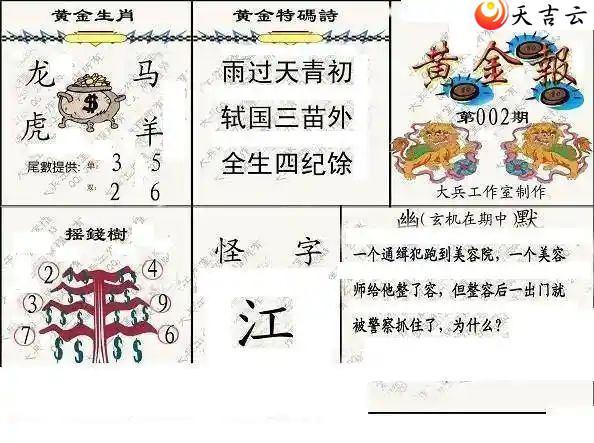 天吉云
黄金生肖
龙 马
虎 羊
尾數提供: 单: 3 5
双: 2 6
黄金特碼詩
雨过天青初
轼国三苗外
全生四纪馀
黄金報
第002期
大兵工作室制作
摇錢樹
2 4
3 9
7 6
怪 字
江
幽(玄机在期中)默
一个通缉犯跑到美容院，一个美容
师给他整了容，但整容后一出门就
被警察抓住了，为什么？